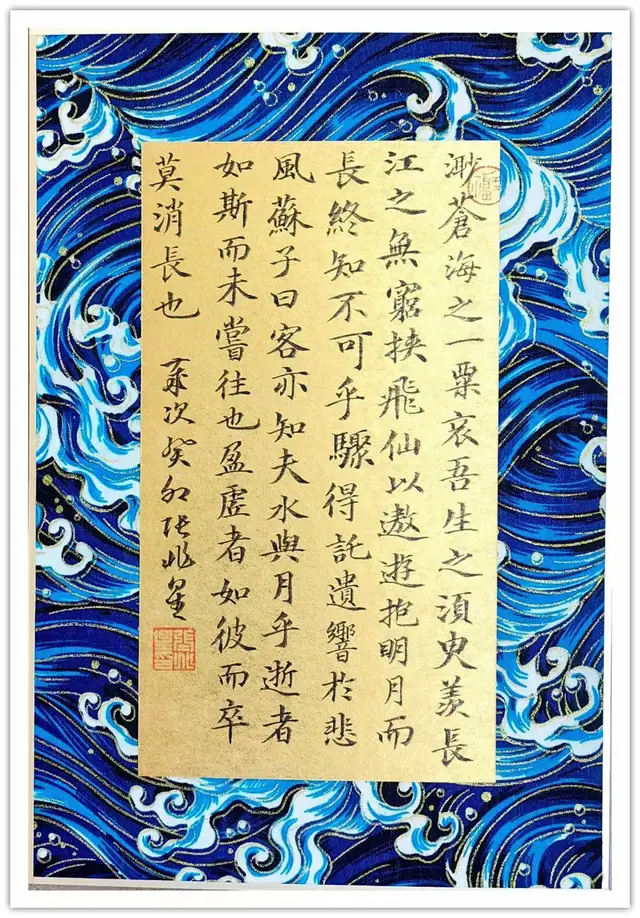 渺蒼海之一粟哀吾生之須臾羨長
江之無窮挾飛仙以遨遊抱明月而
長終知不可乎驟得託遺響於悲
風蘇子曰客亦知夫水與月乎逝者
如斯而未嘗往也盈虛者如彼而卒
莫消長也
歲次癸卯張兆星